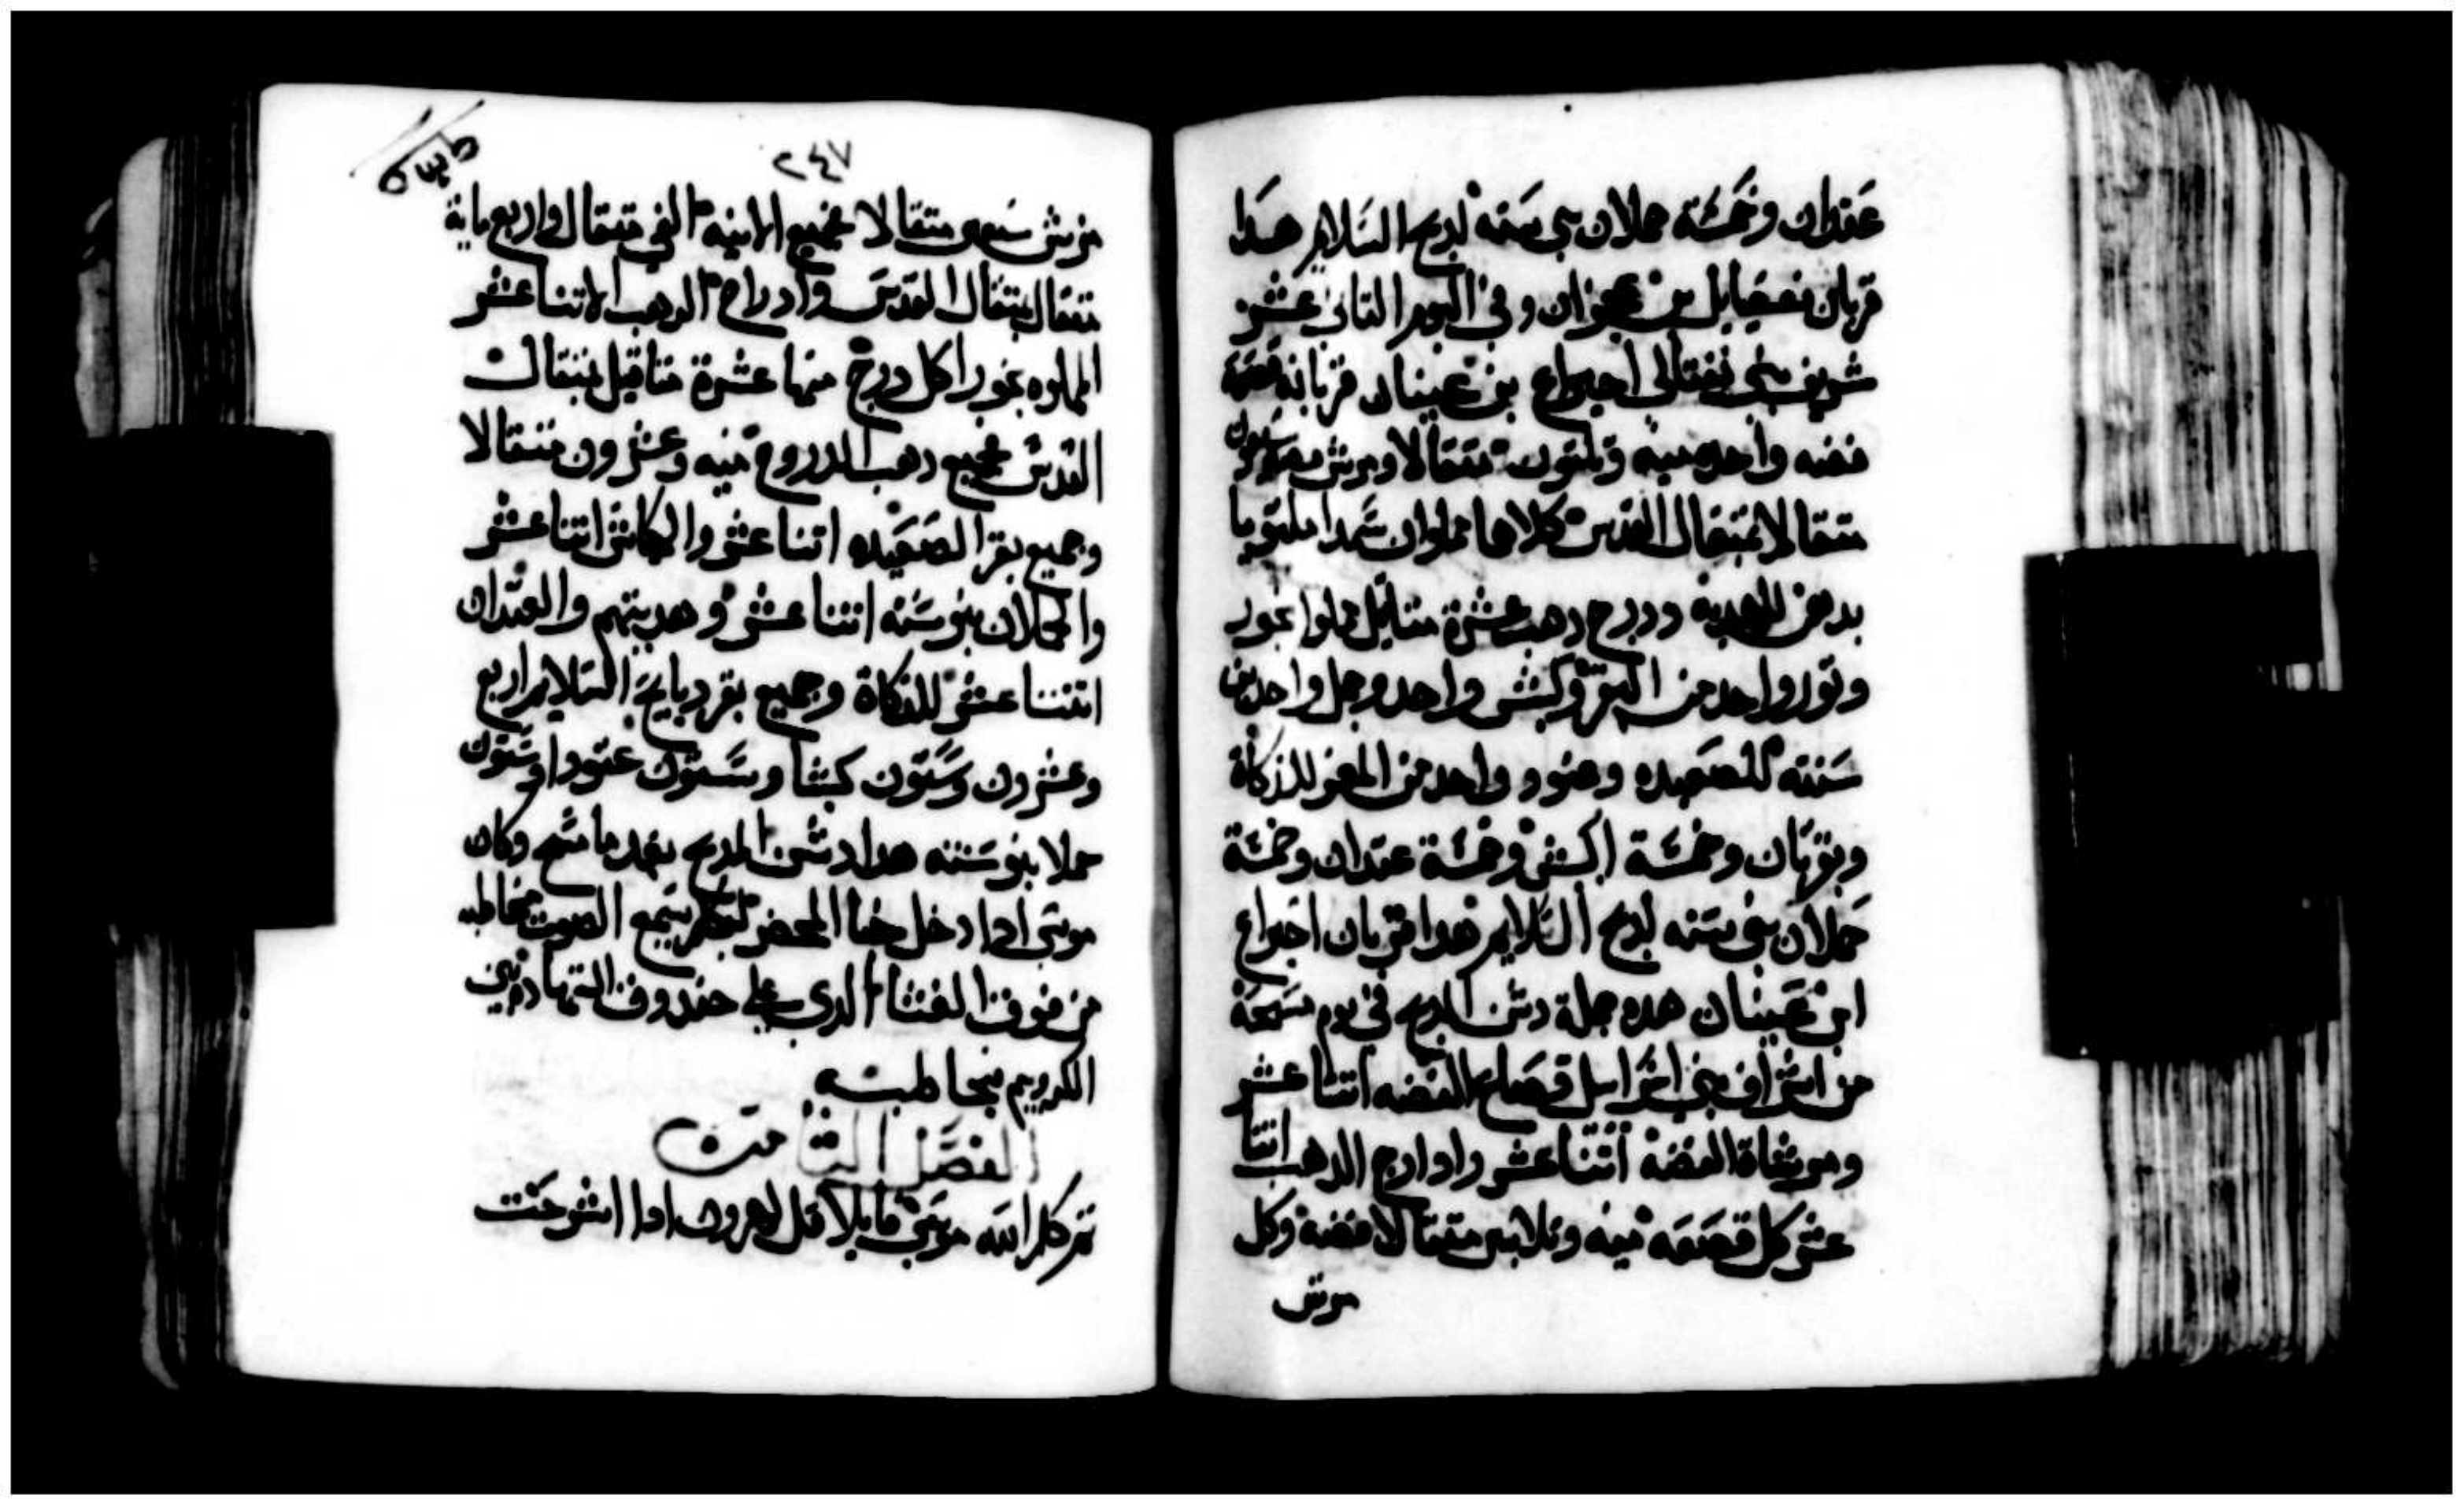 عتدان وخمسة حملان بني سنه لدبح السلامه هدا
قربان فصعيايل بن عجران وفي اليوم التاني عشر
شريف بني نفتالي اجيراع بن عينان قربانه قصعة
فضه واحده ميه وتلتون متقالا ومرش سبعون
متقالا بمتقال القدس كلاهما مملوان سمدا ملتويا
بدهن للهديه ودرج دهب عشرة متاقيل مملوا بخور
وتور واحد من البقر وكبش واحد وحمل واحد بن
سنته للصعيده وعتود واحد من المعز للذكاة
وبقرتان وخمسة اكبش وخمسة عتدان وخمسة
حملان بني سنه لدبح السلامه هدا قربان اجيراع
ابن عينان هده جملة دشن المدبح في يوم مسحه
من اشراف بني اسرايل قصاع الفضه اتنتا عشر
ومرشاة الفضه اتنتا عشر وادراج الدهب اتنتا
عشر كل قصعه ميه وتلاتين متقالا فضه وكل
مرش
٢٤٧
مرش سبعين متقالا فجميع الانيه الفي متقال واربع ماية
متقال بمتقال القدس وادراج الدهب الاتنتا عشر
المملوه بخورا كل درج منها عشرة متاقيل بمتقال
القدس فجميع دهب الدروج ميه وعشرون متقالا
وجميع بقر الصعيده اتنا عشر والكباش اتنا عشر
والحملان بنو سنه اتنا عشر وهديتهم والعتدان
اتننا عشر للذكاة وجميع بقر دبايح السلامه اربع
وعشرون وستون كبشا وستون عتودا وستون
حملا بنو سنته هدا دشن المدبح بعد ما مسح وكان
موسى ادا دخل خبا المحضر ليتكلم يسمع الصوت مخاطبه
من فوق الغشا الدي على صندوق الشهاده بين
الكروبيم فيخاطبه
الفصل التامن
تم كلم الله موسى قايلا قل لهرون ادا اسرجت